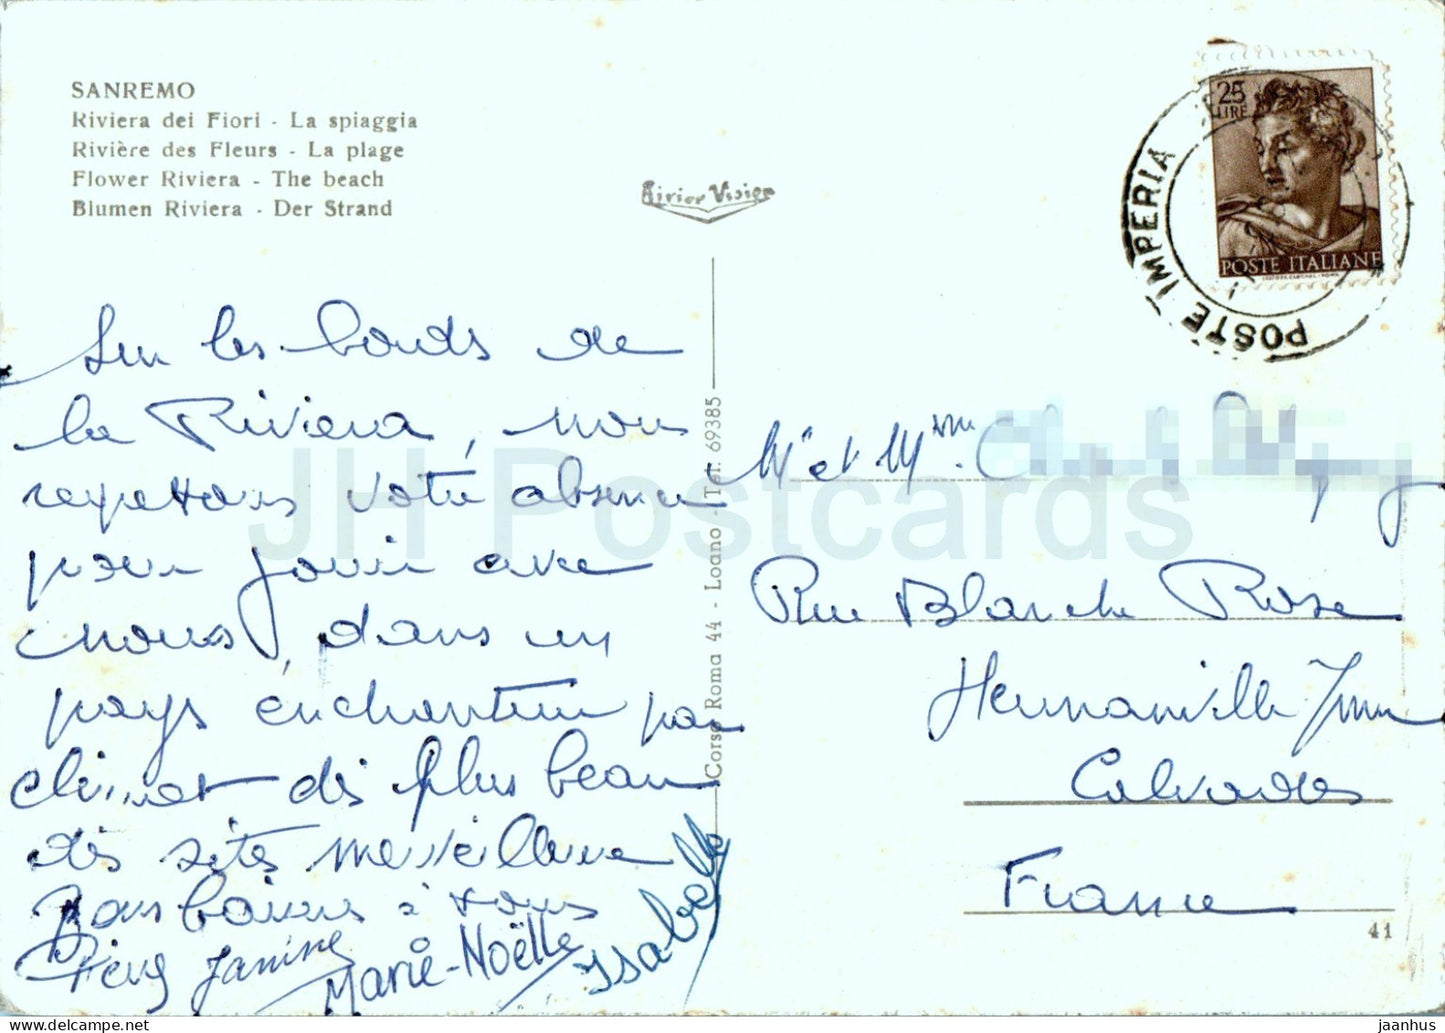 SANREMO
Riviera dei Fiori - La spiaggia
Rivière des Fleurs - La plage
Flower Riviera - The beach
Blumen Riviera - Der Strand
25
LIRE
POSTE ITALIANE
POSTE IMPERIA
Corso Roma 44 - Loano - Tel. 69385
Sur les bords de
la Riviera, nous
regrettons votre absence
pour jouir avec
nous, dans un
pays enchanteur par
climat des plus beau
des sites merveilleux
Bons baisers à vous
Janine
Marie-Noëlle
Isabelle
Mr et Mme. C
Rue Blanche Rose
Hermanville s/mer
Calvados
France
41
JH Postcards
jaanhus — https://www.delcampe.net